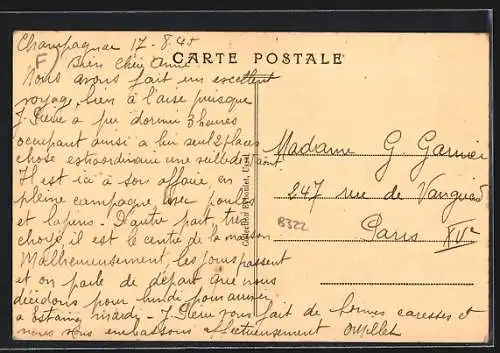 Champagnac 17-8.45
F
CARTE POSTALE
Bien Chère Amie
Nous avons fait un excellent
voyage, bien à l'aise puisque
J. Pierre a pu dormir 3 heures
occupant ainsi à lui seul 2 places
chose extraordinaire une seule était dont
Il est ici à son affaire, en
pleine campagne avec poules
et lapins. D'autre part, très
choyé, il est le centre de la maison
Malheureusement, les jours passent
et on parle de départ que nous
décidons pour lundi pour arriver
à Estaing mardi - J. Pierre vous fait de bonnes caresses et
nous vous embrassons affectueusement
Collection Eyboulet, Ussel
Madame G. Garnier
247 rue de Vaugirard
Paris XVe
8322